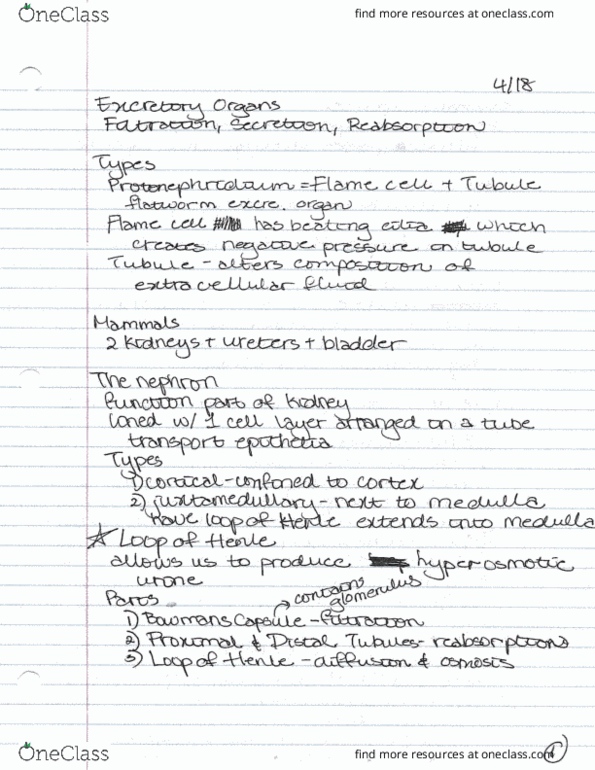 OneClass
find more resources at oneclass.com
4/18
Excretory Organs
Filtration, Secretion, Reabsorption
Types
Protonephridium = Flame cell + Tubule
flatworm excre. organ
Flame cell has beating cilia which
creates negative pressure in tubule
Tubule - alters composition of
extracellular fluid
Mammals
2 kidneys + ureters + bladder
The nephron
function part of kidney
lined w/ 1 cell layer arranged in a tube
transport epithelia
Types
1) cortical - confined to cortex
2) juxtamedullary - next to medulla
have loop of Henle extends into medulla
☆ Loop of Henle
allows us to produce hyperosmotic
urine
Parts
→ contains
glomerulus
1) Bowmans Capsule - filtration
2) Proximal & Distal Tubules - reabsorptions
3) Loop of Henle - diffusion & osmosis
OneClass
find more resources at oneclass.com